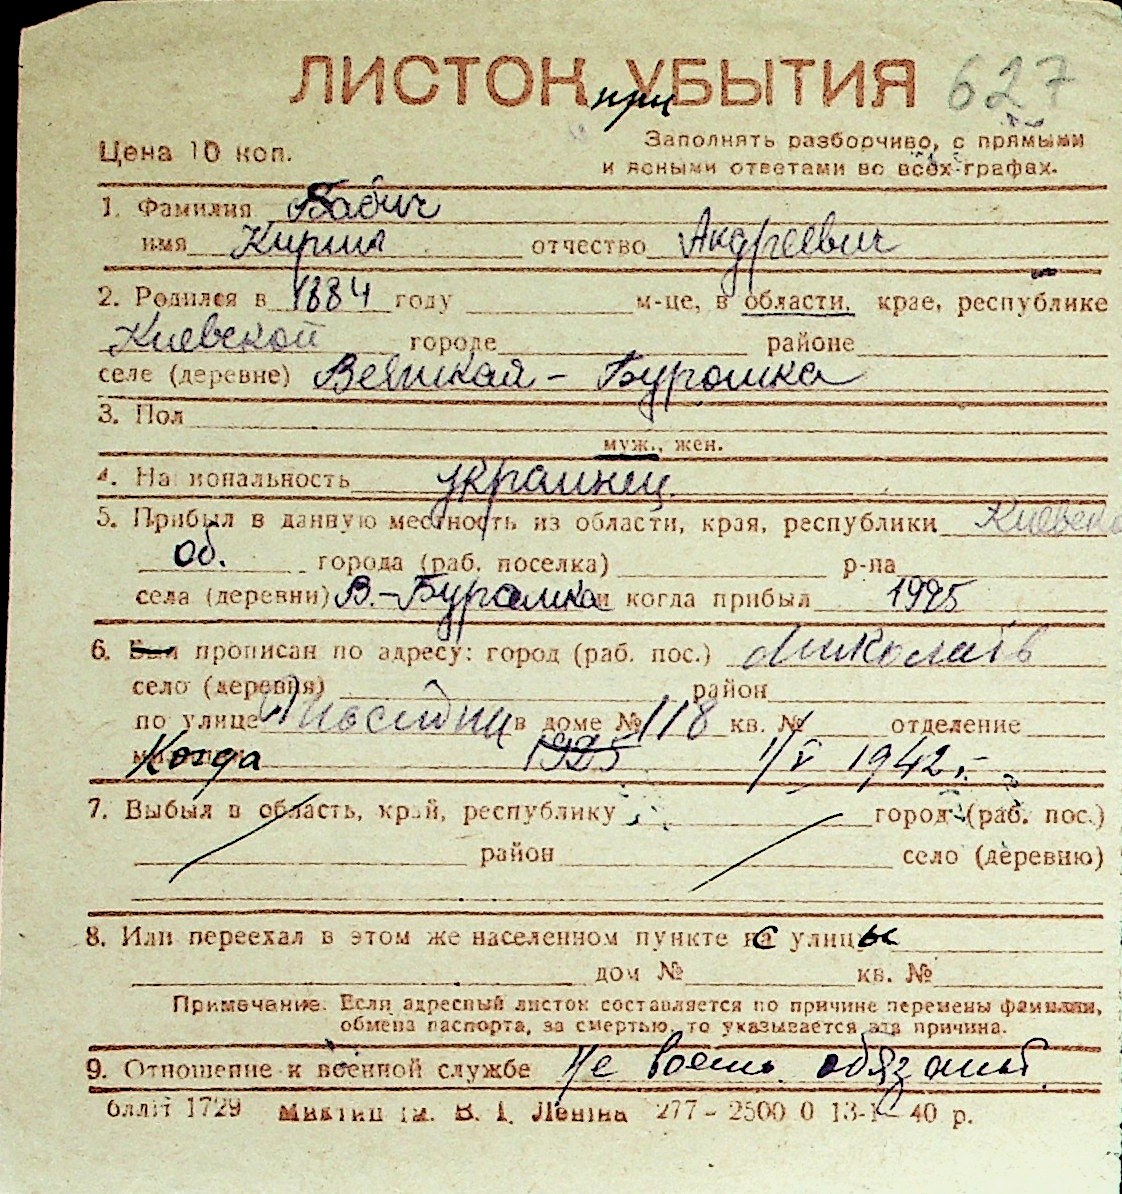 ЛИСТОК при УБЫТИЯ 627
Цена 10 коп.
Заполнять разборчиво, с прямыми
и ясными ответами во всех графах.
1. Фамилия Бабич
имя Кирилл отчество Андреевич
2. Родился в 1884 году м-це, в области, крае, республике
Киевской городе районе
селе (деревне) Великая - Буромка
3. Пол
муж., жен.
4. Национальность украинец
5. Прибыл в данную местность из области, края, республики Киевско
об. города (раб. поселка) р-на
села (деревни) В.-Буромка и когда прибыл 1925
6. Был прописан по адресу: город (раб. пос.) Миколаїв
село (деревня) район
по улице в доме № 118 кв. № отделение
Когда 1925 1/V 1942 г.
7. Выбыл в область, край, республику город (раб. пос.)
район село (деревню)
8. Или переехал в этом же населенном пункте с улицы
дом № кв. №
Примечание. Если адресный листок составляется по причине перемены фамилии,
обмена паспорта, за смертью, то указывается эта причина.
9. Отношение к военной службе Не воен. обязаный
облліт 1729 ім. В. І. Леніна 277 - 2500 0 13- 40 р.